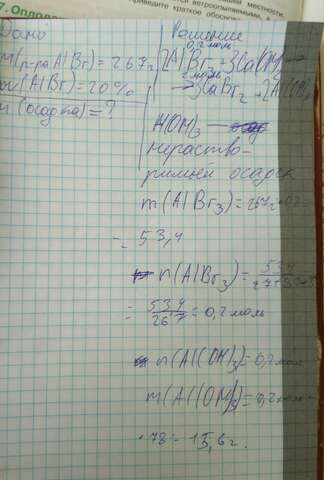 7. Оплодо
приведите краткое обоснов
Дано
m(р-ра AlBr)=267г
ω(AlBr)=20%
m(осадка)=?
Решение
0,2 моль
2AlBr₃+3Ca(OH)₂→
2 моль
→3CaBr₂+2Al(OH)₃
Al(OH)₃ —
нераство-
римый осадок
m(AlBr₃)=267г·0,2=
=53,4
n(AlBr₃)=53,4
=53,4/267=0,2 моль
n(Al(OH)₃)=0,2 моль
m(Al(OH)₃)=0,2 моль
·78=15,6г.